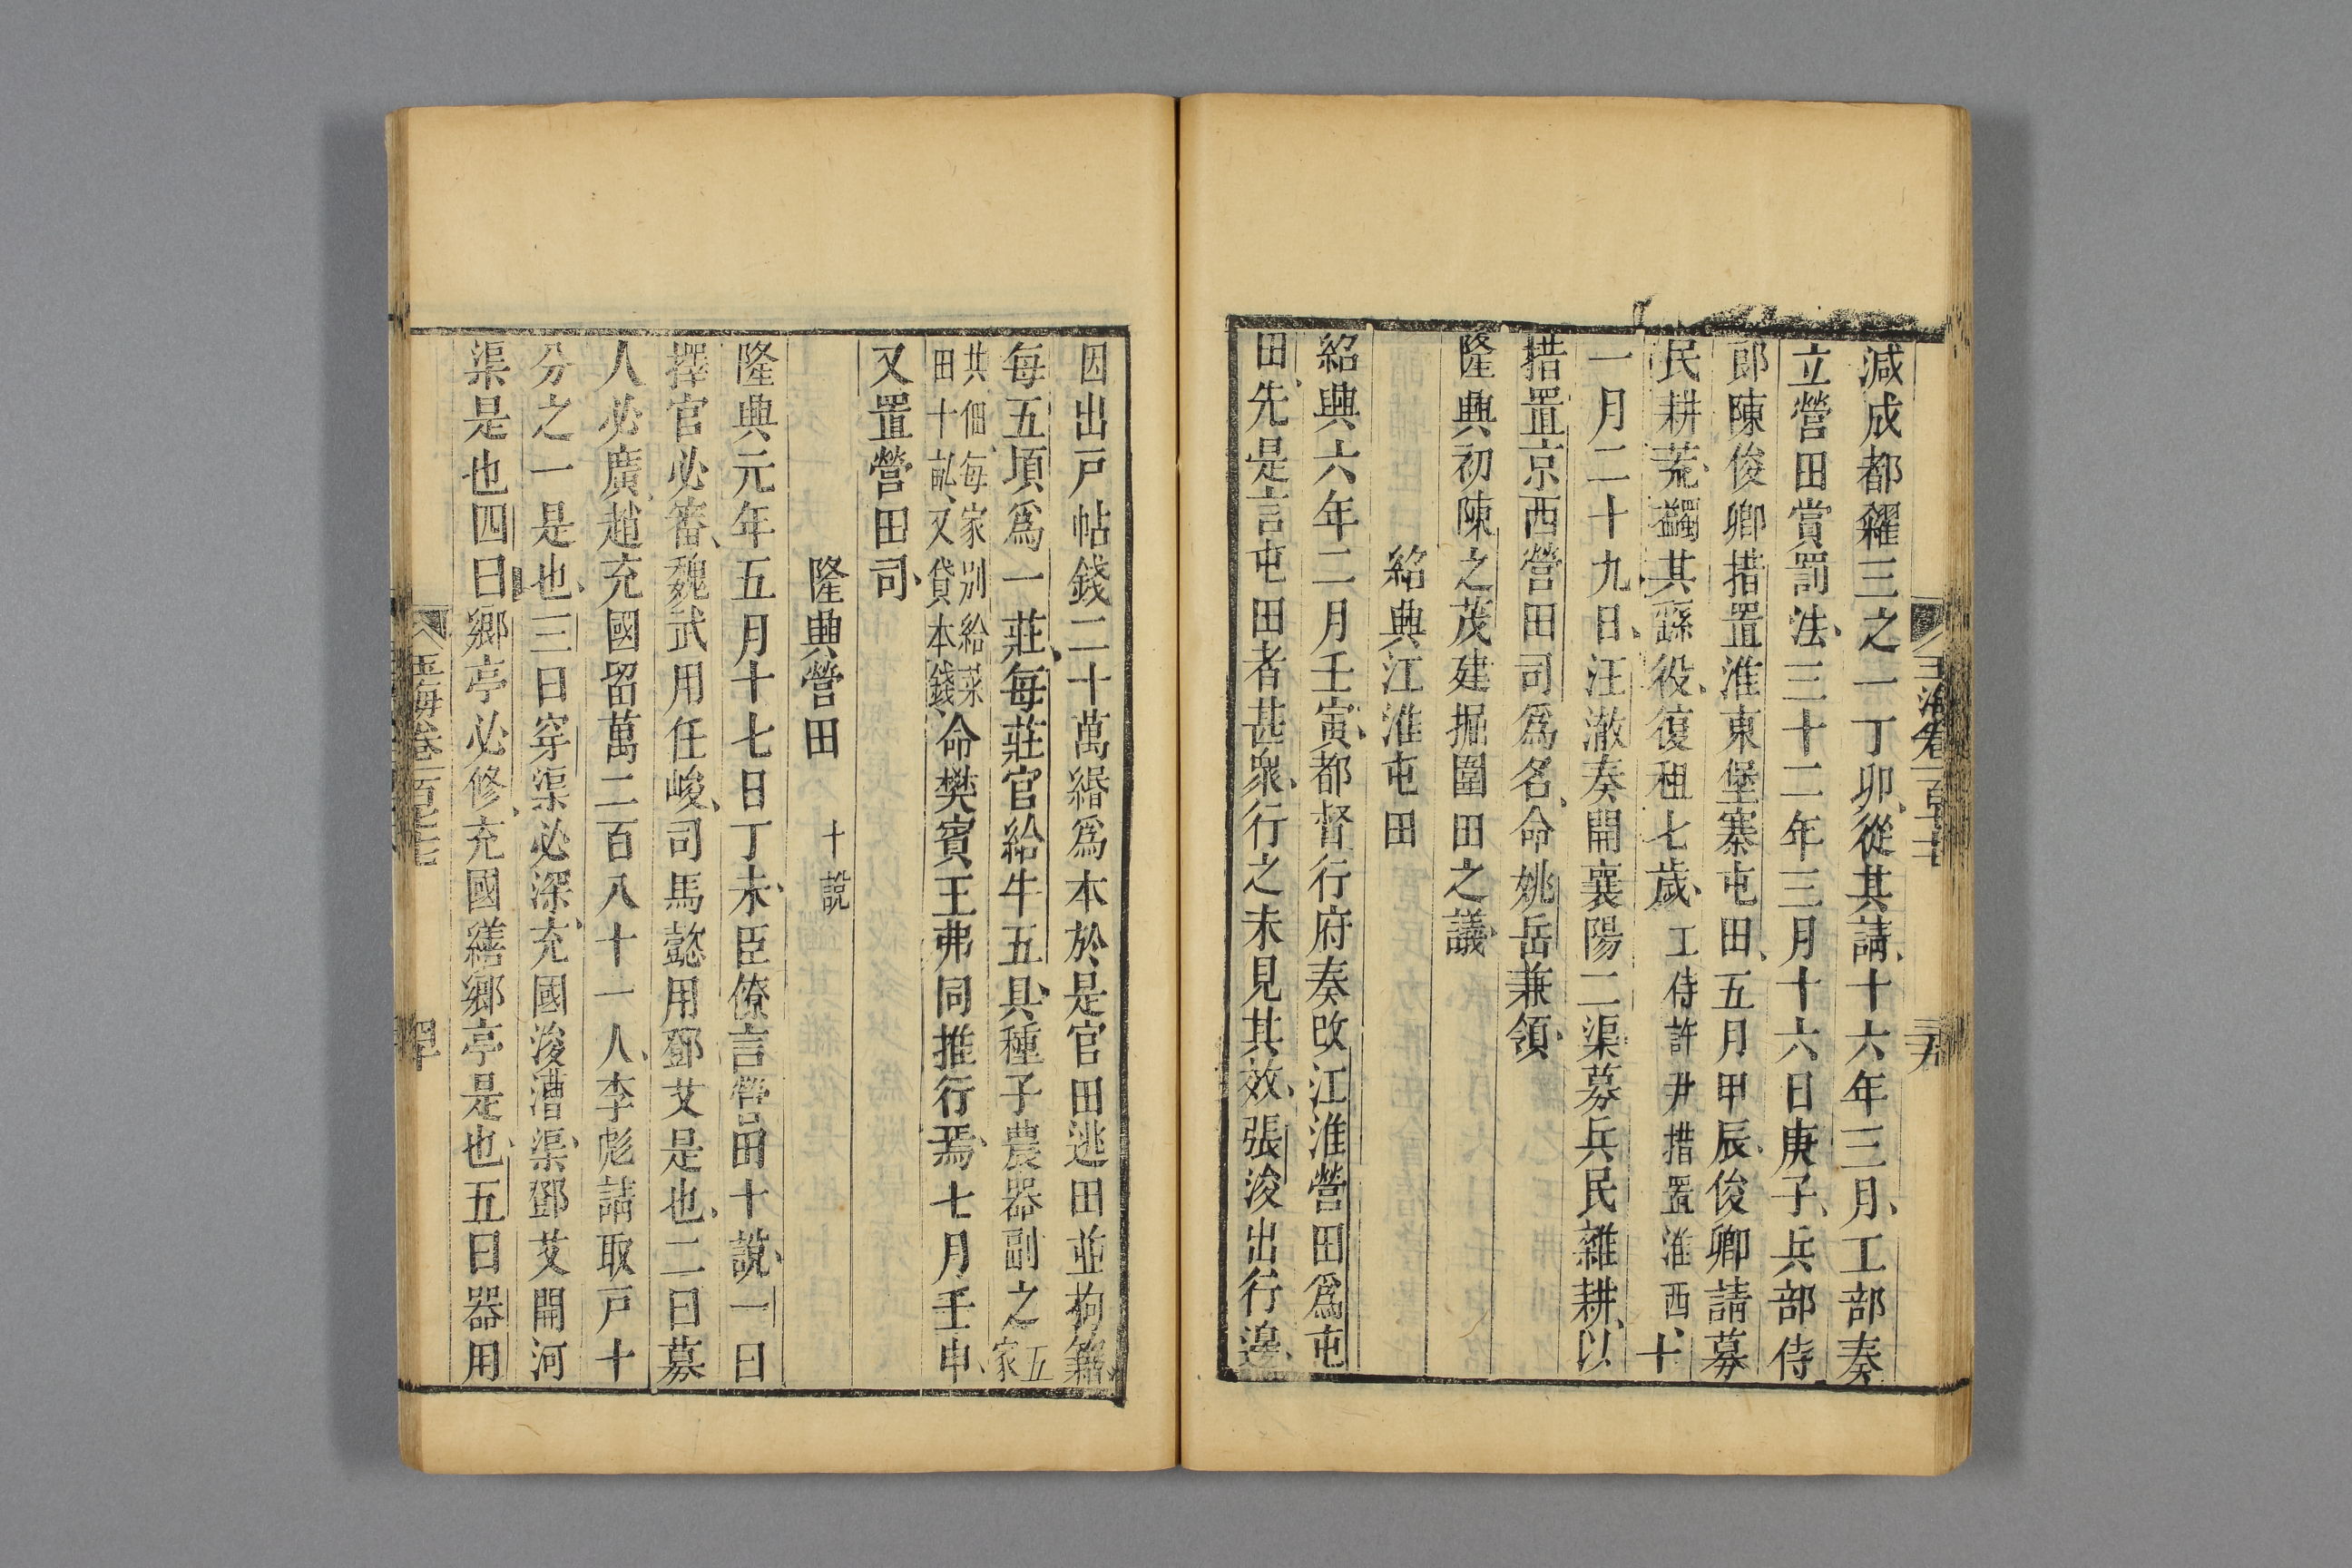 減成都糴三之一丁卯從其請十六年三月工部奏
立營田賞罰法三十二年三月十六日庚子兵部侍
郎陳俊卿措置淮東堡寨屯田五月甲辰俊卿請募
民耕荒蠲其繇役復租七歲工侍許尹措置淮西十
一月二十九日汪澈奏開襄陽二渠募兵民雜耕以
措置京西營田司爲名命姚岳兼領
隆興初陳之茂建掘圍田之議
紹興江淮屯田
紹興六年二月壬寅都督行府奏改江淮營田爲屯
田先是言屯田者甚衆行之未見其效張浚出行邊
因出戸帖錢二十萬緡爲本於是官田逃田並拘籍
每五頃爲一莊每莊官給牛五具種子農器副之五家
共佃每家別給菜田十畝又貸本錢命樊賓王弗同推行焉七月壬申
又置營田司
隆興營田 十說
隆興元年五月十七日丁未臣僚言營田十說一曰
擇官必審魏武用任峻司馬懿用鄧艾是也二曰募
人必廣趙充國留萬二百八十一人李彪請取戸十
分之一是也三曰穿渠必深充國浚漕渠鄧艾開河
渠是也四曰鄉亭必修充國繕鄉亭是也五曰器用
玉海卷一百七十七
四十